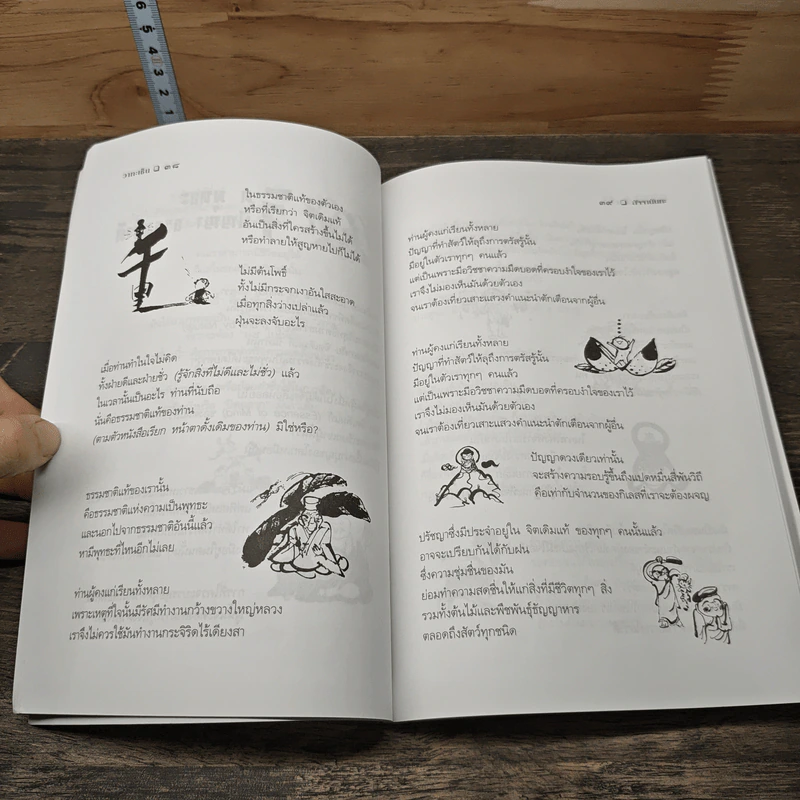 6
5
4
3
2
1
วาทะเซ็น ❏ ๓๘
ในธรรมชาติแท้ของตัวเอง
หรือที่เรียกว่า จิตเดิมแท้
อันเป็นสิ่งที่ใครสร้างขึ้นไม่ได้
หรือทำลายให้สูญหายไปก็ไม่ได้
ไม่มีต้นโพธิ์
ทั้งไม่มีกระจกเงาอันใสสะอาด
เมื่อทุกสิ่งว่างเปล่าแล้ว
ฝุ่นจะลงจับอะไร
เมื่อท่านทำในใจไม่คิด
ทั้งฝ่ายดีและฝ่ายชั่ว (รู้จักสิ่งที่ไม่ดีและไม่ชั่ว) แล้ว
ในเวลานั้นเป็นอะไร ท่านที่นับถือ
นั่นคือธรรมชาติแท้ของท่าน
(ตามตัวหนังสือเรียก หน้าตาดั้งเดิมของท่าน) มิใช่หรือ?
ธรรมชาติแท้ของเรานั้น
คือธรรมชาติแห่งความเป็นพุทธะ
และนอกไปจากธรรมชาติอันนี้แล้ว
หามีพุทธะที่ไหนอีกไม่เลย
ท่านผู้คงแก่เรียนทั้งหลาย
เพราะเหตุที่ใจนั้นมีรัศมีทำงานกว้างขวางใหญ่หลวง
เราจึงไม่ควรใช้มันทำงานกระจิริดไร้เดียงสา
๓๙ ❏
ท่านผู้คงแก่เรียนทั้งหลาย
ปัญญาที่ทำสัตว์ให้ลุถึงการตรัสรู้นั้น
มีอยู่ในตัวเราทุกๆ คนแล้ว
แต่เป็นเพราะมีอวิชชาความมืดบอดที่ครอบงำใจของเราไว้
เราจึงไม่มองเห็นมันด้วยตัวเอง
จนเราต้องเที่ยวเสาะแสวงคำแนะนำตักเตือนจากผู้อื่น
ท่านผู้คงแก่เรียนทั้งหลาย
ปัญญาที่ทำสัตว์ให้ลุถึงการตรัสรู้นั้น
มีอยู่ในตัวเราทุกๆ คนแล้ว
แต่เป็นเพราะมีอวิชชาความมืดบอดที่ครอบงำใจของเราไว้
เราจึงไม่มองเห็นมันด้วยตัวเอง
จนเราต้องเที่ยวเสาะแสวงคำแนะนำตักเตือนจากผู้อื่น
ปัญญาดวงเดียวเท่านั้น
จะสร้างความรอบรู้ขึ้นถึงแปดหมื่นสี่พันวิถี
คือเท่ากับจำนวนของกิเลสที่เราจะต้องผจญ
ปรัชญาซึ่งมีประจำอยู่ใน จิตเดิมแท้ ของทุกๆ คนนั้นแล้ว
อาจจะเปรียบกันได้กับฝน
ซึ่งความชุ่มชื่นของมัน
ย่อมทำความสดชื่นให้แก่สิ่งที่มีชีวิตทุกๆ สิ่ง
รวมทั้งต้นไม้และพืชพันธุ์ธัญญาหาร
ตลอดถึงสัตว์ทุกชนิด